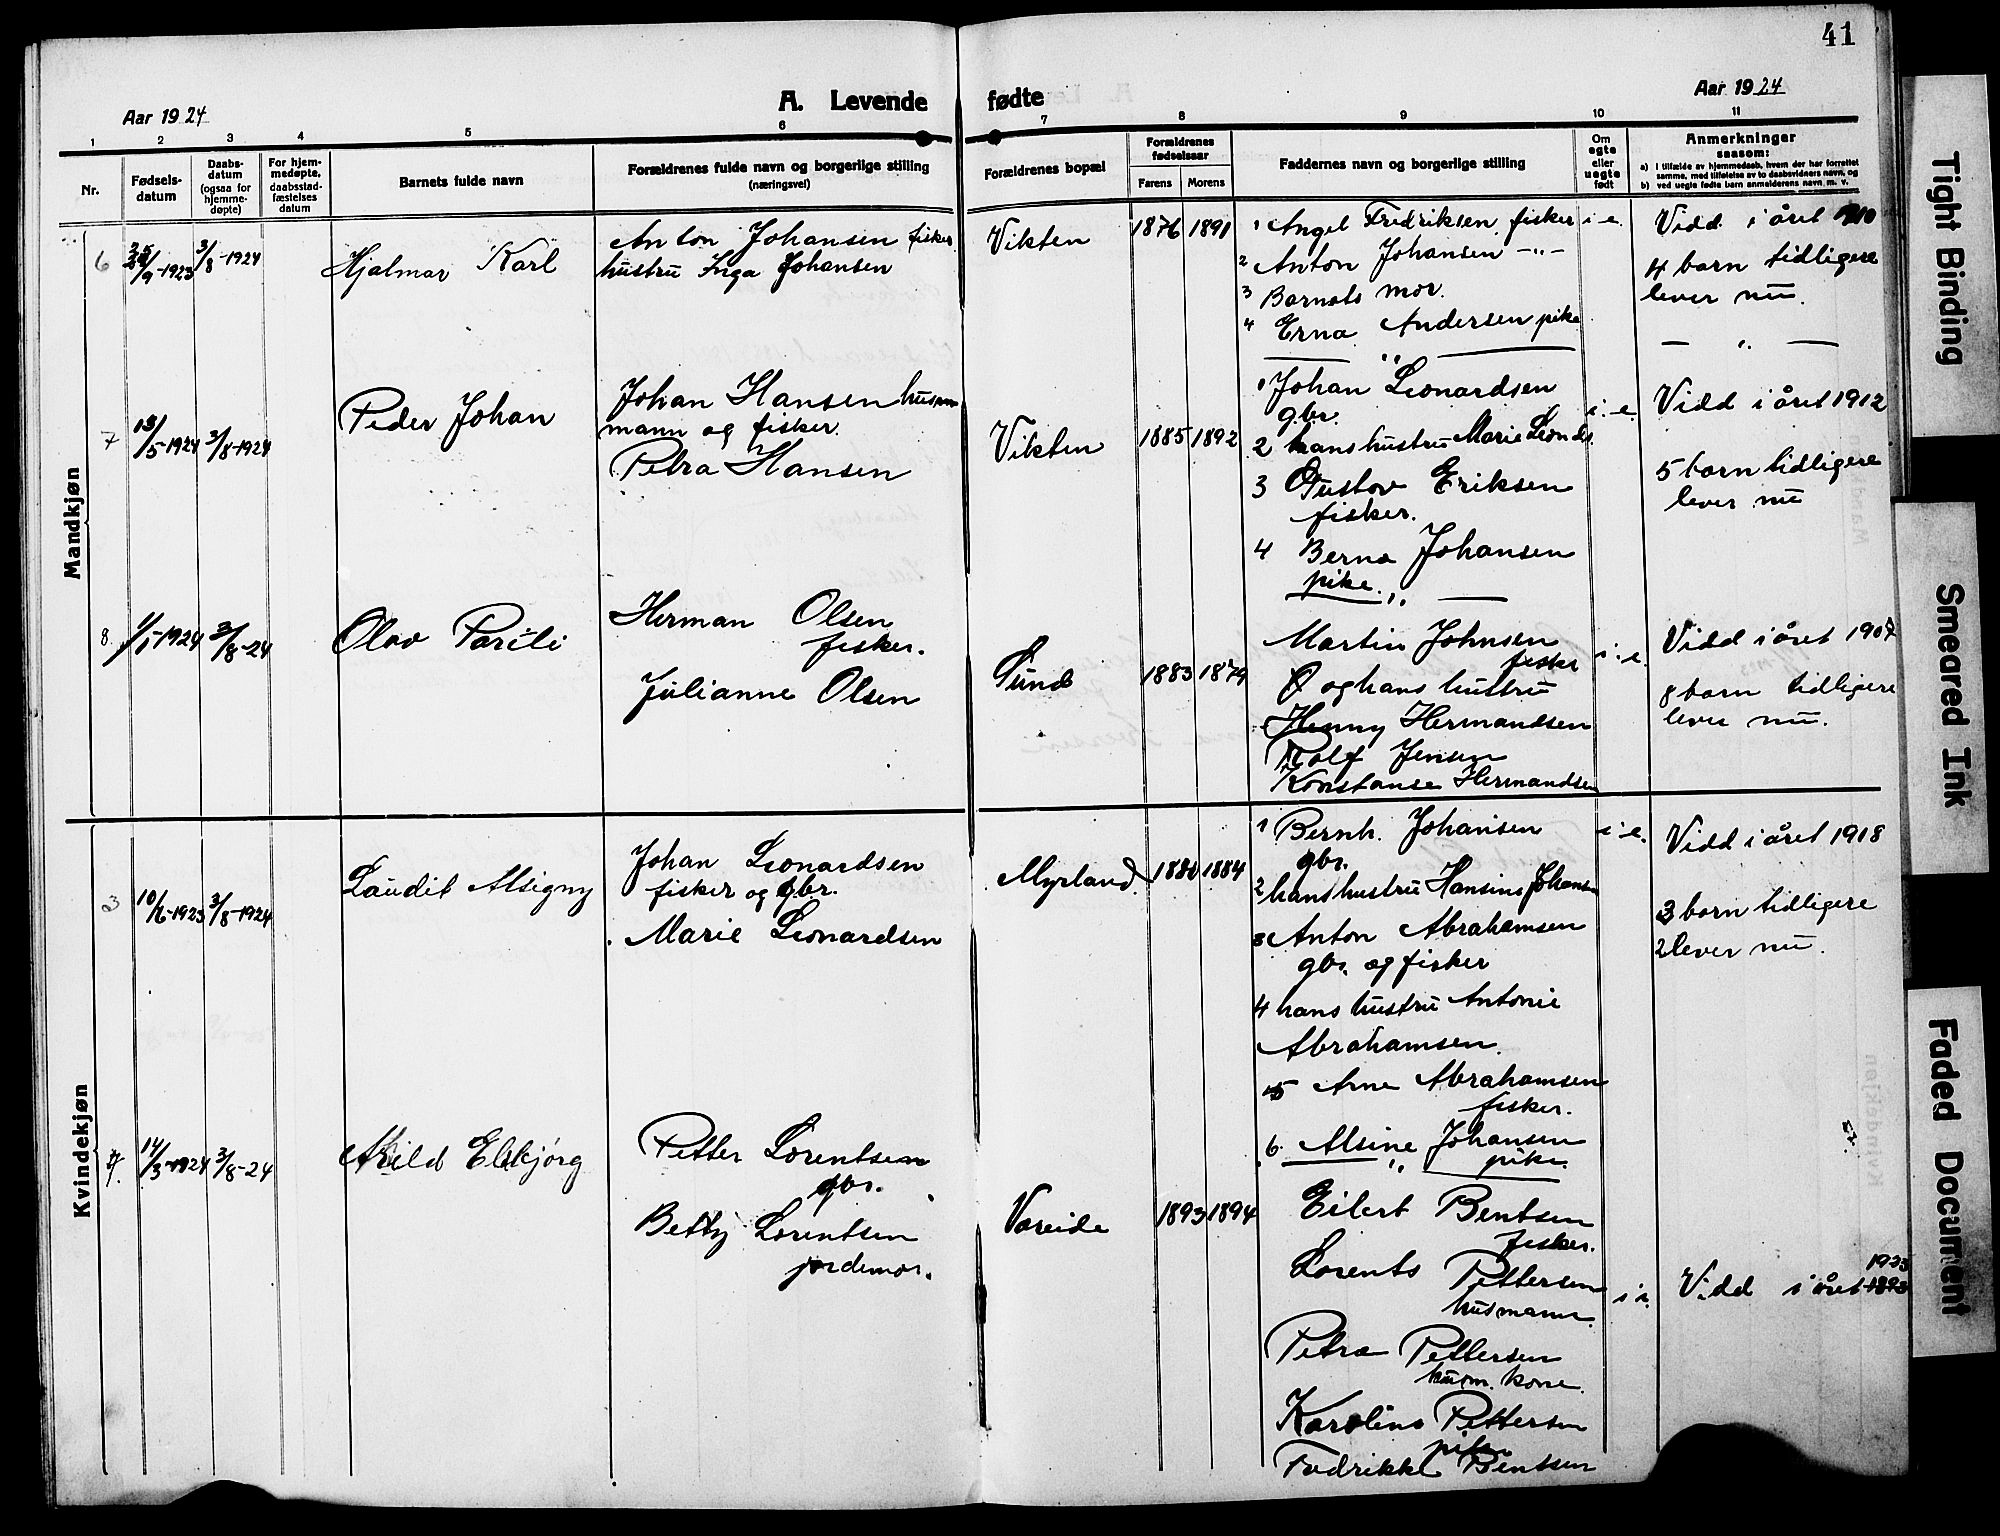 41
Aar 1924
A. Levende fødte
Aar 1924
1 2 3 4 5 6 7 8 9 10 11
Nr.
Fødsels-
datum
Daabs-
datum
(ogsaa for
hjemme-
døpte)
For hjem-
medøpte,
daabsstad-
fæstelses
datum
Barnets fulde navn
Forældrenes fulde navn og borgerlige stilling
(næringsvei)
Forældrenes bopæl
Forældrenes
fødselsaar
Farens Morens
Faddernes navn og borgerlige stilling
Om
egte
eller
uegte
født
Anmerkninger
saasom:
a) i tilfælde av hjemmedaab, hvem der har forrettet
samme, med tilføielse av to daabsvidners navn, og
b) ved uegte fødte barn anmelderens navn m. v.
Mandkjøn
6
25/9-1923 3/8-1924
Hjalmar Karl
Anton Johansen fisker
hustru Inga Johansen
Vikten
1876 1891
1 Angel Fredriksen fisker
2 Anton Johansen -"-
3 Barnets mor.
4 Erna Andersen pike
i e.
Vidd i året 1910
4 barn tidligere
lever nu.
— " —
7
13/5-1924 3/8-1924
Peder Johan
Johan Hansen hus
mann og fisker.
Petra Hansen
Vikten
1885 1892
1 Johan Leonardsen
gbr.
2 hans hustru Marie Leonds
3 Gustav Eriksen
fisker.
4 Berna Johansen
pike.
i. e.
Vidd i året 1912
5 barn tidligere
lever nu
8
1/1-1924 3/8-24
Olav Parili
Herman Olsen
fisker.
Julianne Olsen
Sund
1883 1879
Martin Johnsen
fisker
og hans hustru
Henny Hermandsen
Rolf Jensen
Konstanse Hermandsen
i. e.
Vidd i året 1907
8 barn tidligere
lever nu.
Kvindekjøn
3
10/6-1923 3/8-1924
Laudit Alsigny
Johan Leonardsen
fisker og gbr.
Marie Leonardsen
Myrland
1880 1884
1 Bernh. Johansen
gbr.
2 hans hustru Hansine Johansen
3 Anton Abrahamsen
gbr. og fisker
4 hans hustru Antonie
Abrahamsen.
5 Arne Abrahamsen
fisker.
6. Alsine Johansen
pike.
i e.
Vidd i året 1918
3 barn tidligere
2 lever nu.
14/3-1924 3/8-24
Elbjørg
Petter Lorentsen
gbr.
Betty Lorentsen
jordemor.
Vareide
1893 1894
Eilert Bentsen
fisker.
Lorents Pettersen
husmann.
Petra Pettersen
husm. kone.
Karoline Pettersen
pike
Fredrikke Bentsen
i. e.
1923
Vidd i året
Tight Binding
Smeared Ink
Faded Document